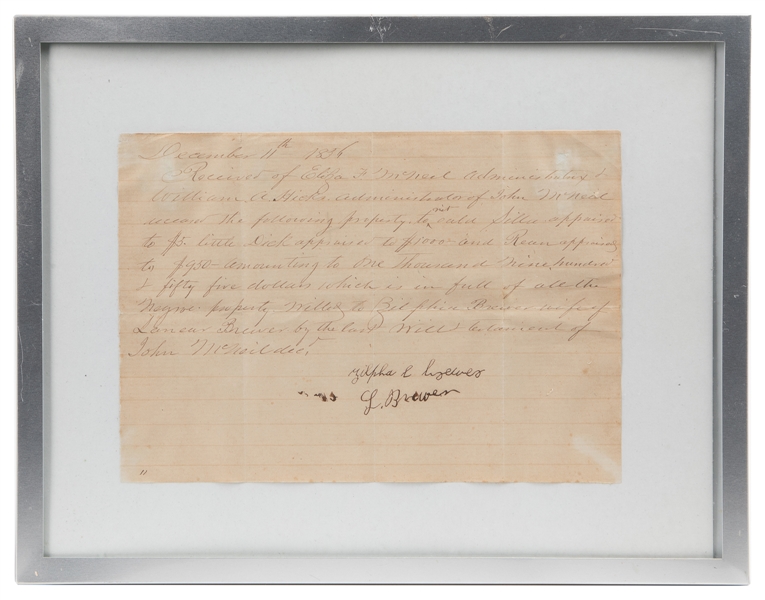 December 11th 18
Received of Eliza F McNeil administratrix &
William A Hicks administrator of John McNeil
the following property, to wit
to $5. little Dick appraised to $1000 and appraised
to $950 amounting to One Thousand Nine hundred
& fifty five dollars which is in full of all the
Negro property Willed to Brewer wife of
Brewer by the last Will & testament of
John McNeil decd
Brewer
L. Brewer